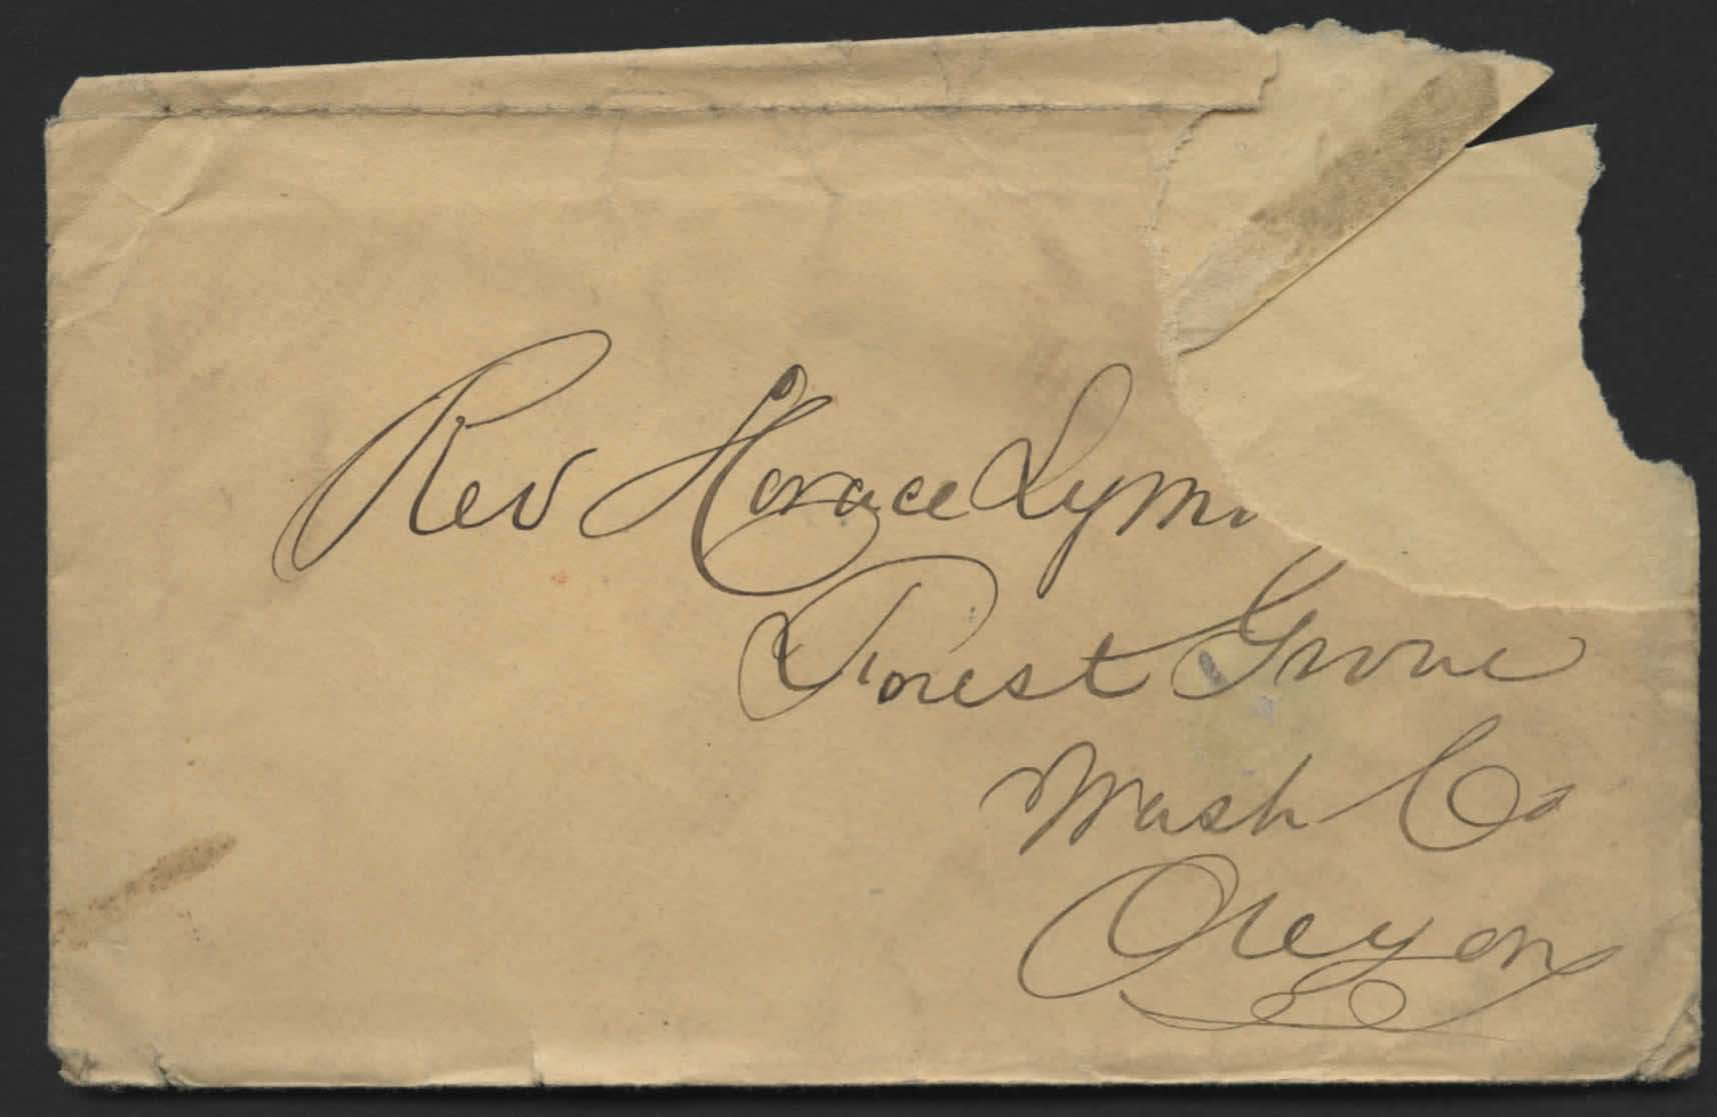 Rev Horace Lym
Forest Grove
Wash Co
Oregon